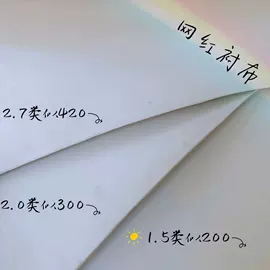 网红衬布
2.7类似420
2.0类似300
1.5类似200